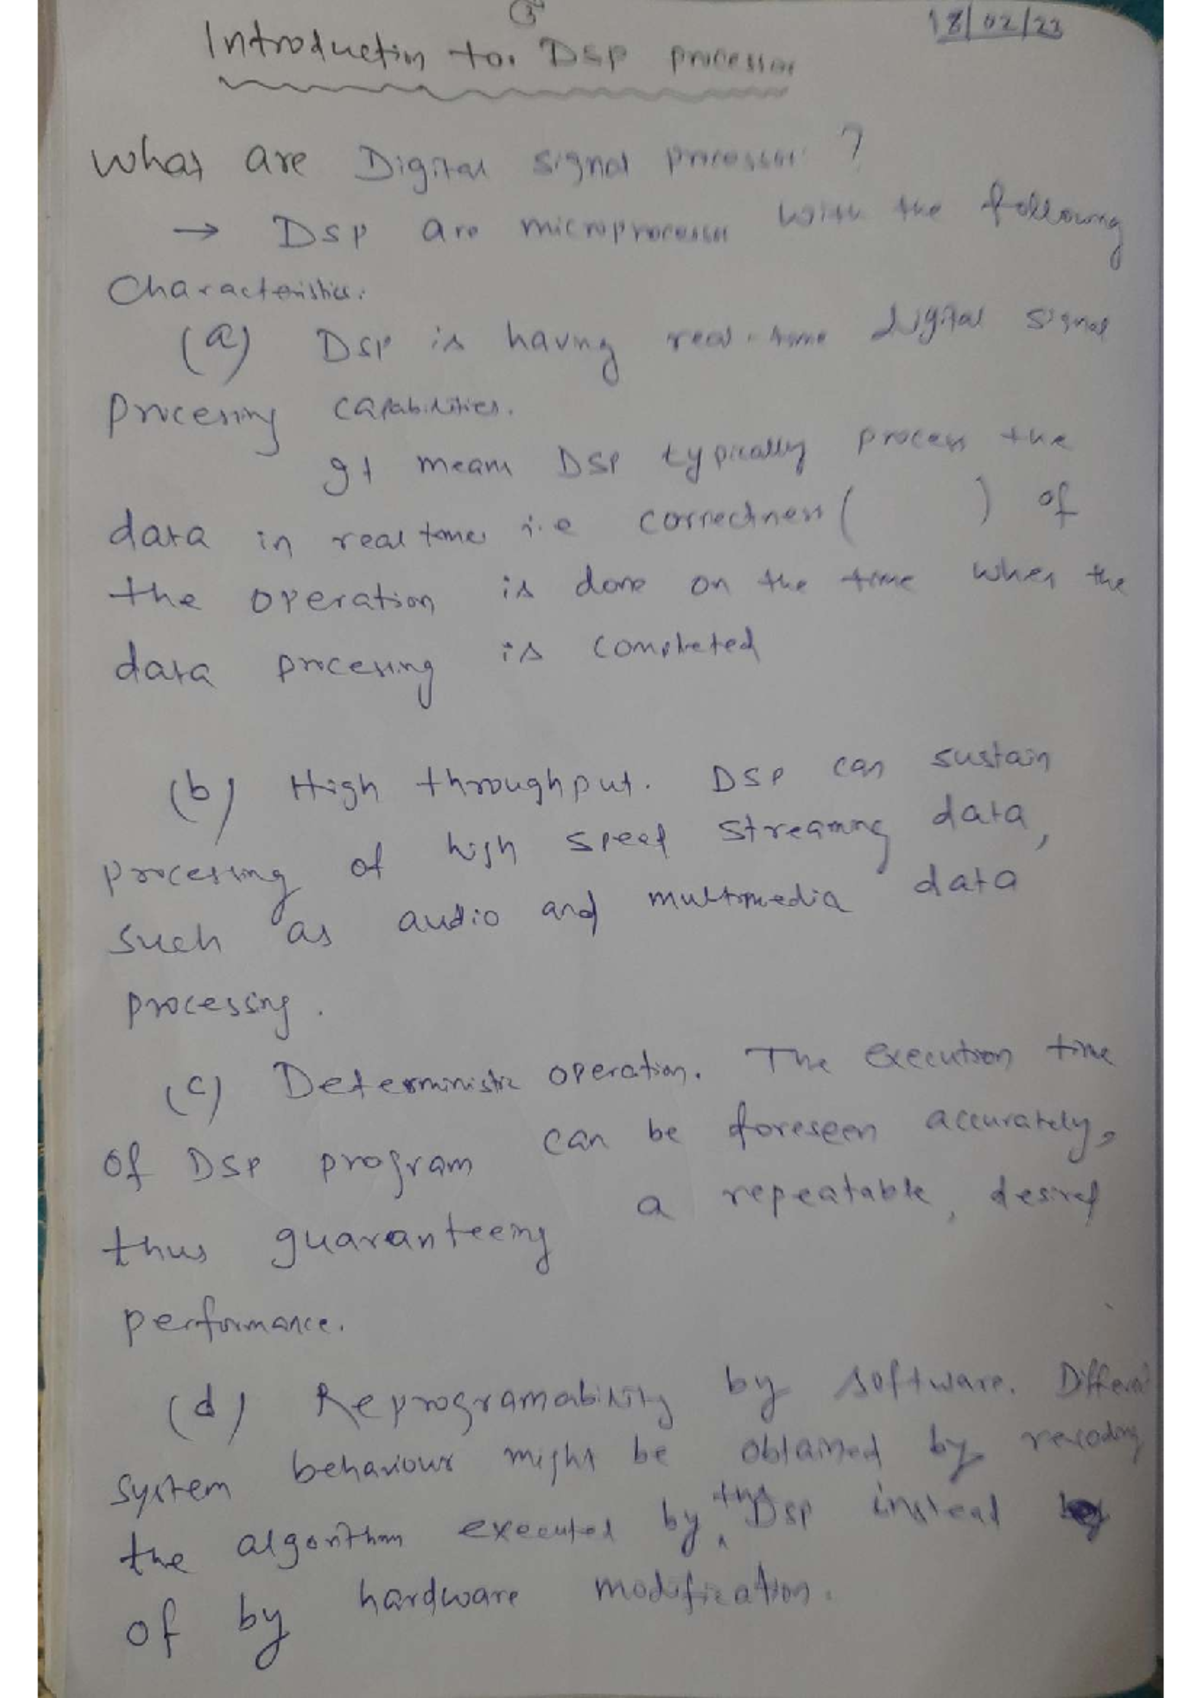 18/02/23
Introduction to DSP processor
What are Digital signal processor ?
→ DSP are microprocessor with the following
Characteristics.
(a) DSP is having real-time digital signal
Processing capabilities.
It means DSP typically process the
data in real time i.e correctness ( ) of
the operation is done on the time when the
data processing is completed
(b) High throughput. DSP can sustain
processing of high speed streaming data,
such as audio and multimedia data
processing.
(c) Deterministic operation. The execution time
of DSP program can be foreseen accurately,
thus guaranteeing a repeatable, desired
performance.
(d) Reprogramability by software. Different
system behaviour might be obtained by recoding
the algorithm executed by the DSP instead
of by hardware modification.